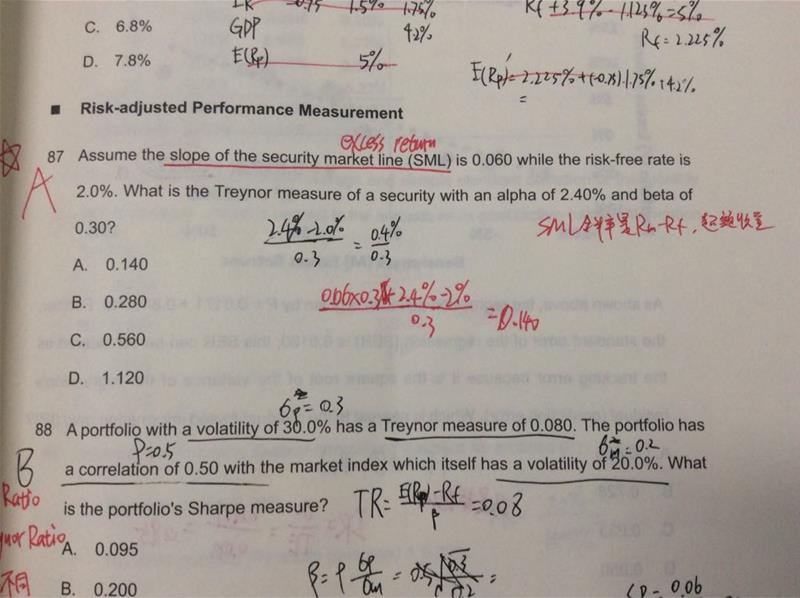 -0.75 1.5% 1.75%
Rf + 3.9% - 1.125% = 5%
C. 6.8%
GDP 4.2%
Rf = 2.225%
D. 7.8%
E(Rp) 5%
E(Rp)' = 2.225% + (-0.75) 1.75% + 4.2%
=
■ Risk-adjusted Performance Measurement
excess return
87 Assume the slope of the security market line (SML) is 0.060 while the risk-free rate is
A
2.0%. What is the Treynor measure of a security with an alpha of 2.40% and beta of
0.30?
SML斜率是Rm-Rf,超额收益
2.4% - 2.0% / 0.3 = 0.4% / 0.3
A. 0.140
B. 0.280
0.06×0.3+2.4%-2% / 0.3 = 0.140
C. 0.560
D. 1.120
σp = 0.3
88 A portfolio with a volatility of 30.0% has a Treynor measure of 0.080. The portfolio has
ρ=0.5
σm = 0.2
B
a correlation of 0.50 with the market index which itself has a volatility of 20.0%. What
Ratio
is the portfolio's Sharpe measure?
TR = E(Rp) - Rf / β = 0.08
nor Ratio
A. 0.095
不同
B. 0.200
β = ρ σp / σm = 0.5 =
= 0.06